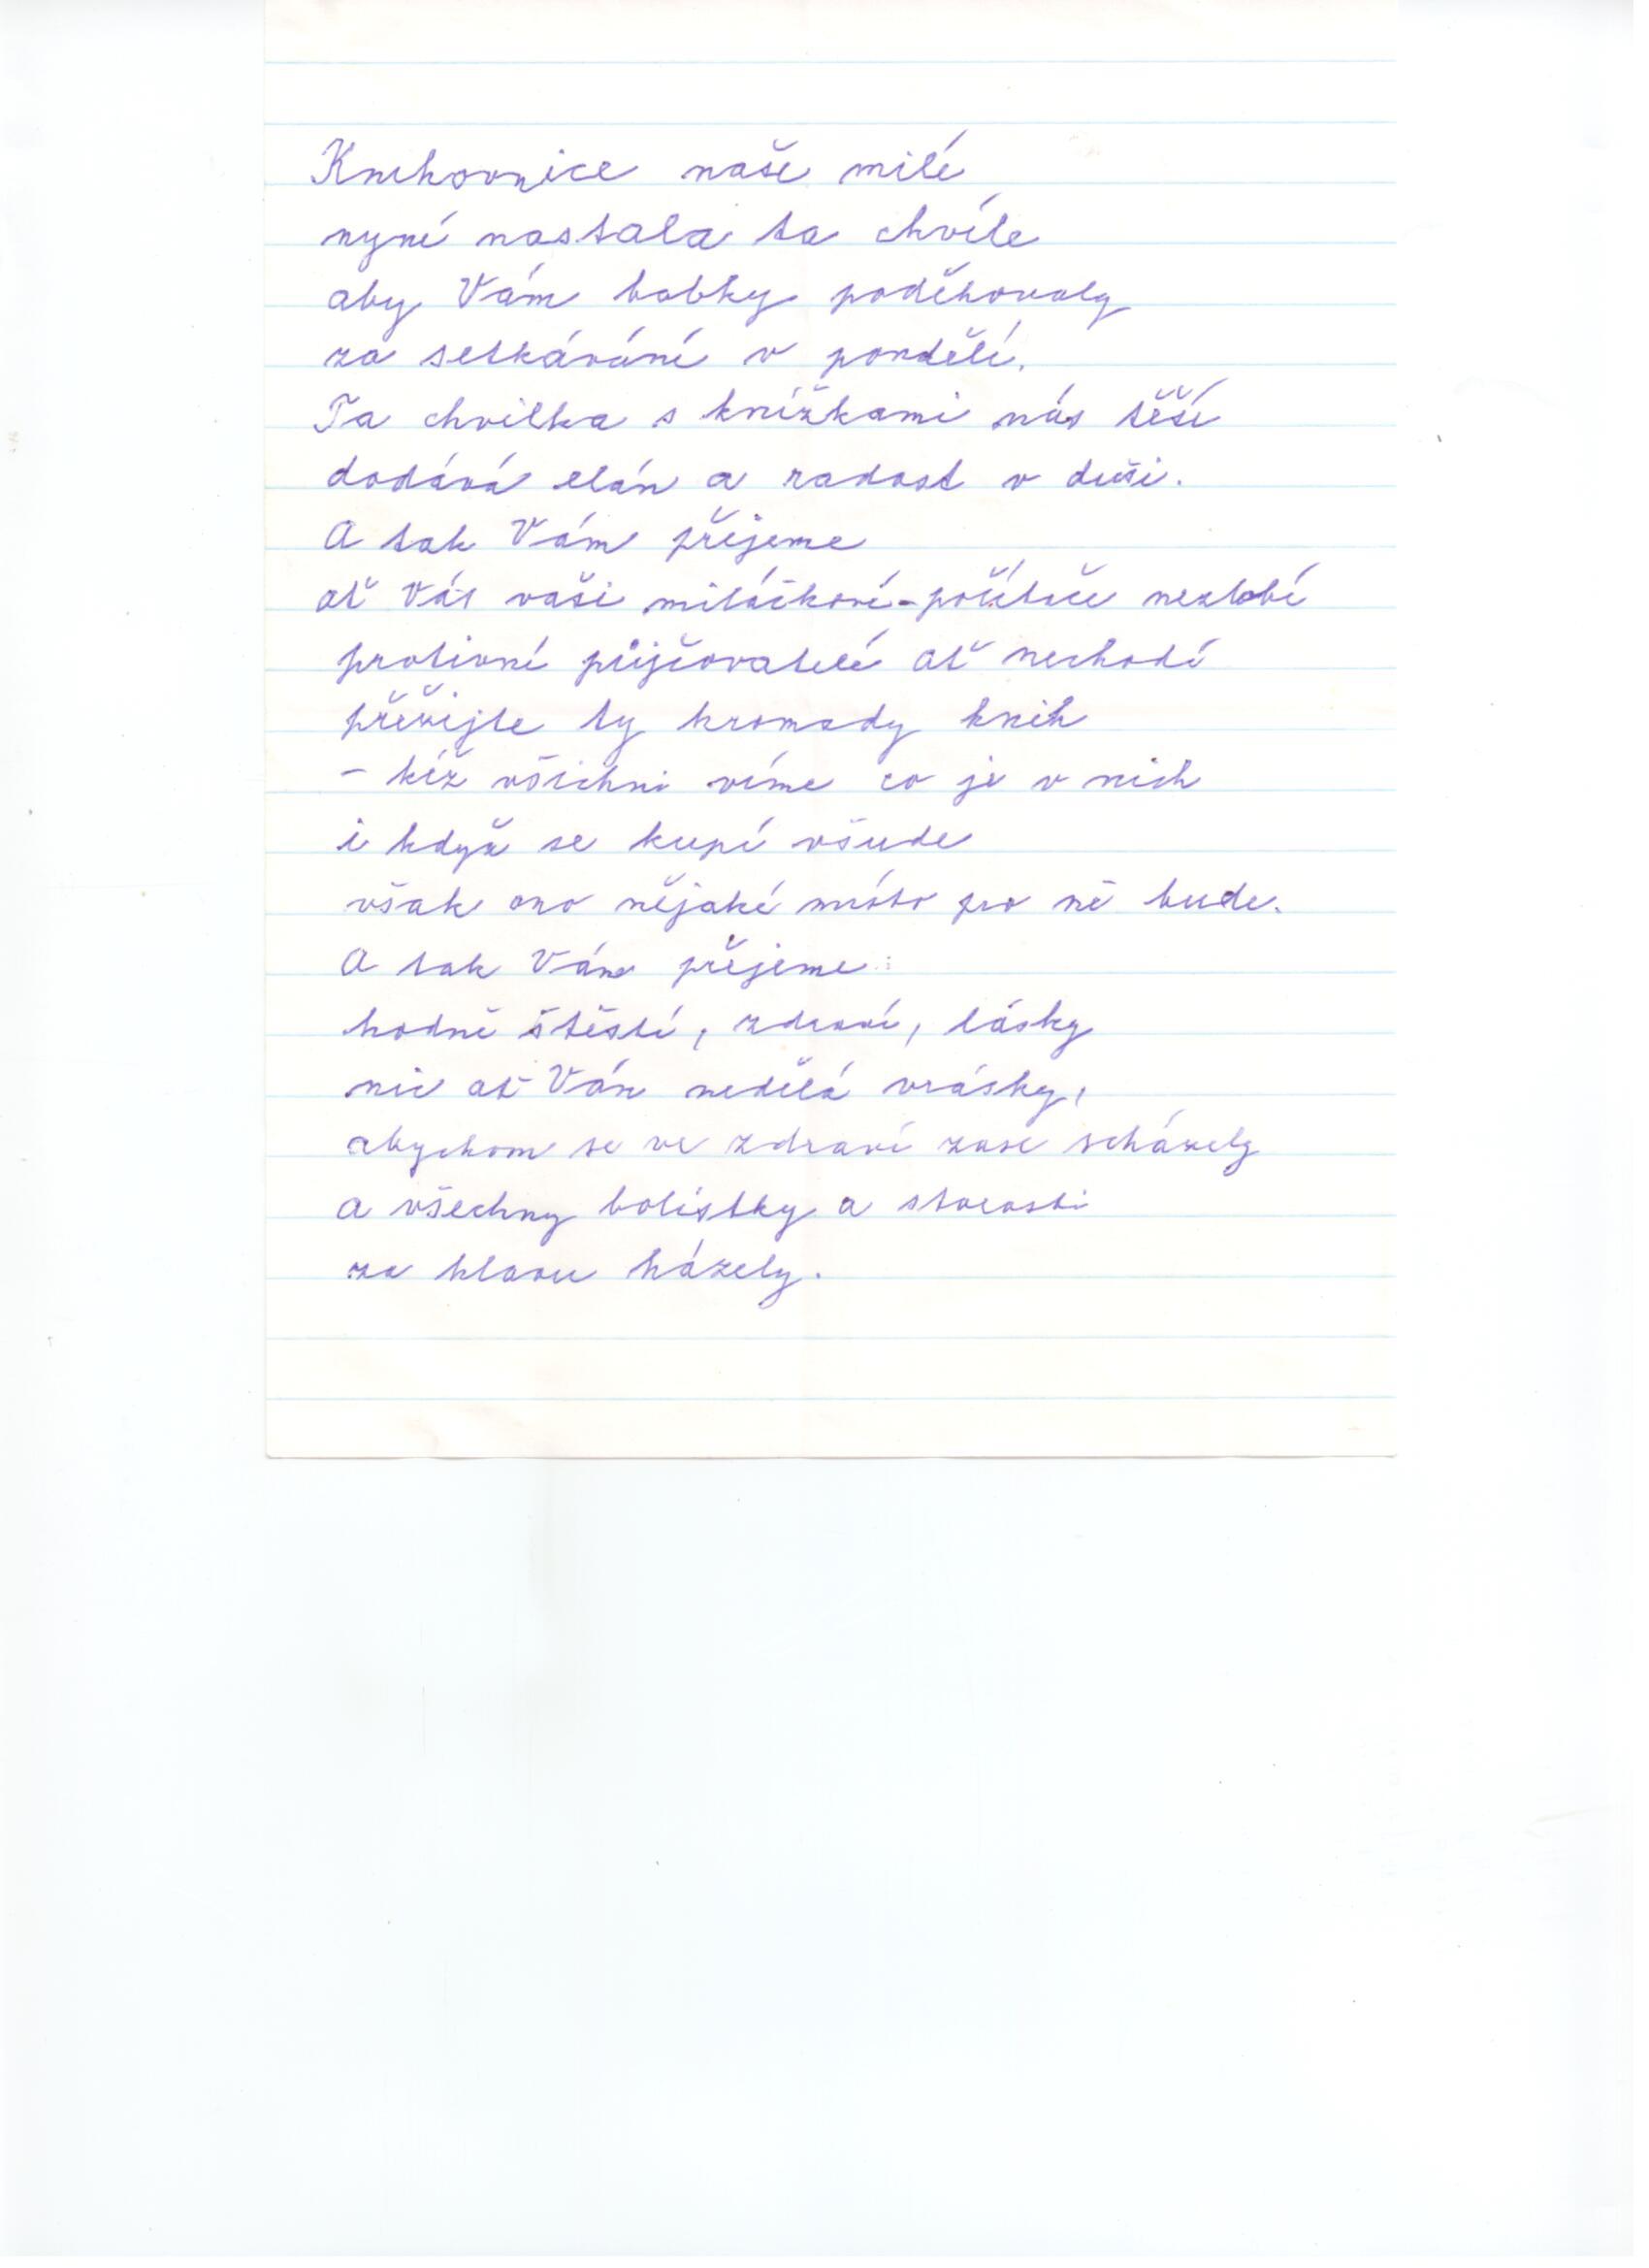 Knihovnice naše milé
nyní nastala ta chvíle
aby Vám babky poděkovaly
za setkávání v pondělí.
Ta chvilka s knížkami nás těší
dodává elán a radost v duši.
A tak Vám přejeme
ať Vás vaši miláčkové - počítače nezlobí
protivní půjčovatelé ať nechodí
přežijte ty hromady knih
- kéž všichni víme co je v nich
i když se kupí všude
však ono nějaké místo pro ně bude.
A tak Vám přejeme:
hodně štěstí, zdraví, lásky
nic ať Vám nedělá vrásky,
abychom se ve zdraví zase scházely
a všechny bolístky a starosti
za hlavu házely.